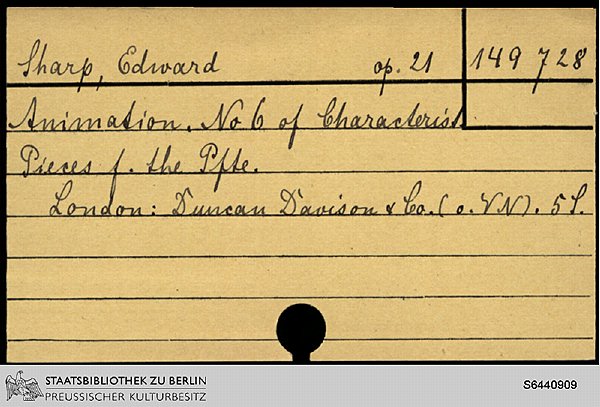 Sharp, Edward op. 21 149 728
Animation. No 6 of Characterist.
Pieces f. the Pfte.
London: Duncan Davison & Co. (o. VN). 5 S.
STAATSBIBLIOTHEK ZU BERLIN
PREUSSISCHER KULTURBESITZ
S6440909